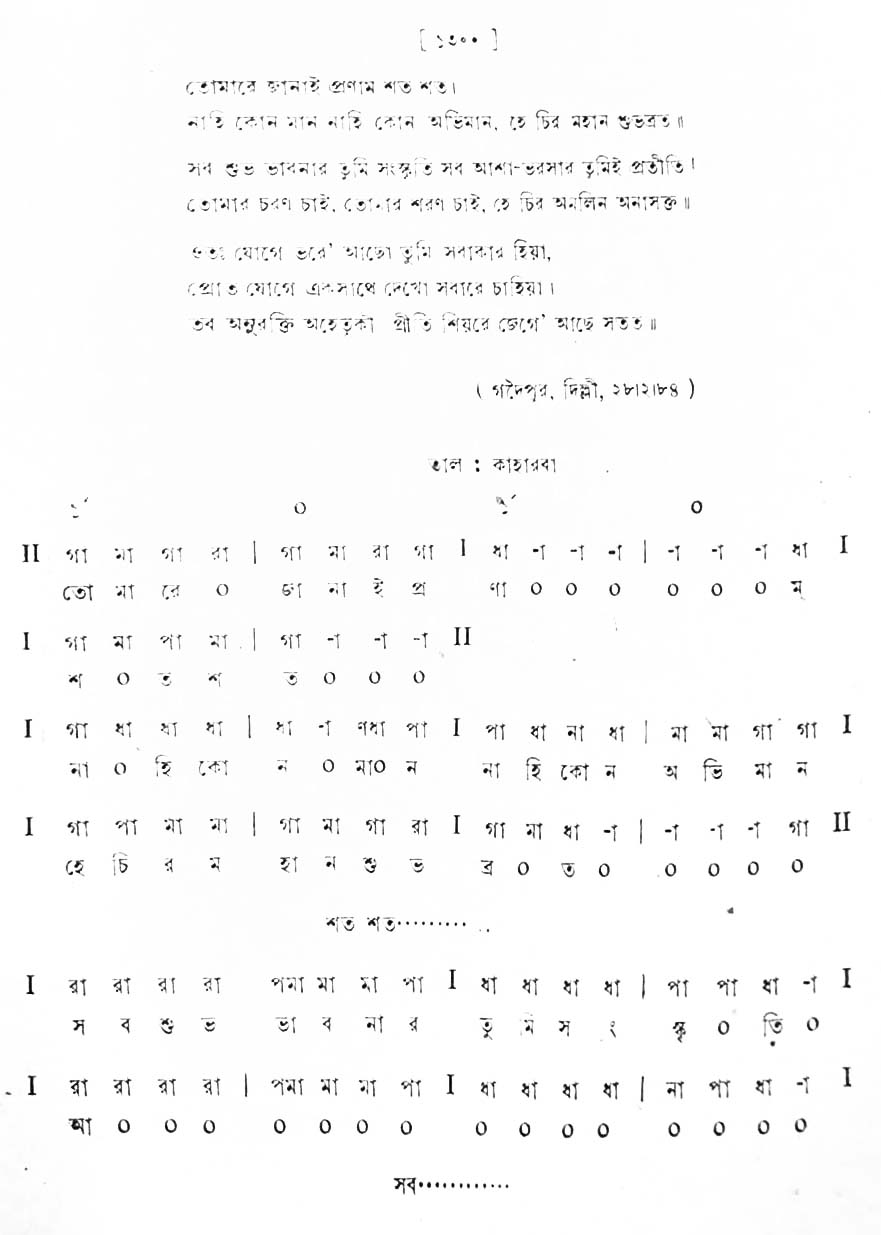 [ ১৩০০ ]
তোমারে জানাই প্রণাম শত শত।
নাহি কোন মান নাহি কোন অভিমান, হে চির মহান শুভব্রত॥
সব শুভ ভাবনার তুমি সংস্কৃতি সব আশা-ভরসার তুমিই প্রতীতি।
তোমার চরণ চাই, তোমার শরণ চাই, হে চির অমলিন অনাসক্ত॥
ওতঃ যোগে ভরে' আছো তুমি সবাকার হিয়া,
প্রোত যোগে একসাথে দেখো সবারে চাহিয়া।
তব অনুরক্তি অহেতুকী প্রীতি শিয়রে জেগে' আছে সতত॥
( গদৈপুর, দিল্লী, ২৮।২।৮৪ )
তাল : কাহারবা
১´ ০ ১´ ০
II গা মা গা রা | গা মা রা গা I ধা -া -া -া | -া -া -া ধা I
তো মা রে ০ জা না ই প্র ণা ০ ০ ০ ০ ০ ০ ম্
I গা মা পা মা | গা -া -া -া II
শ ০ ত শ ত ০ ০ ০
I গা ধা ধা ধা | ধা -া ণধা পা I পা ধা না ধা | মা মা গা গা I
না ০ হি কো ন ০ মা০ ন না হি কো ন অ ভি মা ন
I গা পা মা মা | গা মা গা রা I গা মা ধা -া | -া -া -া গা II
হে চি র ম হা ন শু ভ ব্র ০ ত ০ ০ ০ ০ ০
শত শত·········
I রা রা রা রা পমা মা মা পা I ধা ধা ধা ধা | পা পা ধা -া I
স ব শু ভ ভা ব না র তু মি স ং স্কৃ ০ তি ০
I রা রা রা রা | পমা মা মা পা I ধা ধা ধা ধা | না পা ধা -া I
আ ০ ০ ০ ০ ০ ০ ০ ০ ০ ০ ০ ০ ০ ০ ০
সব············